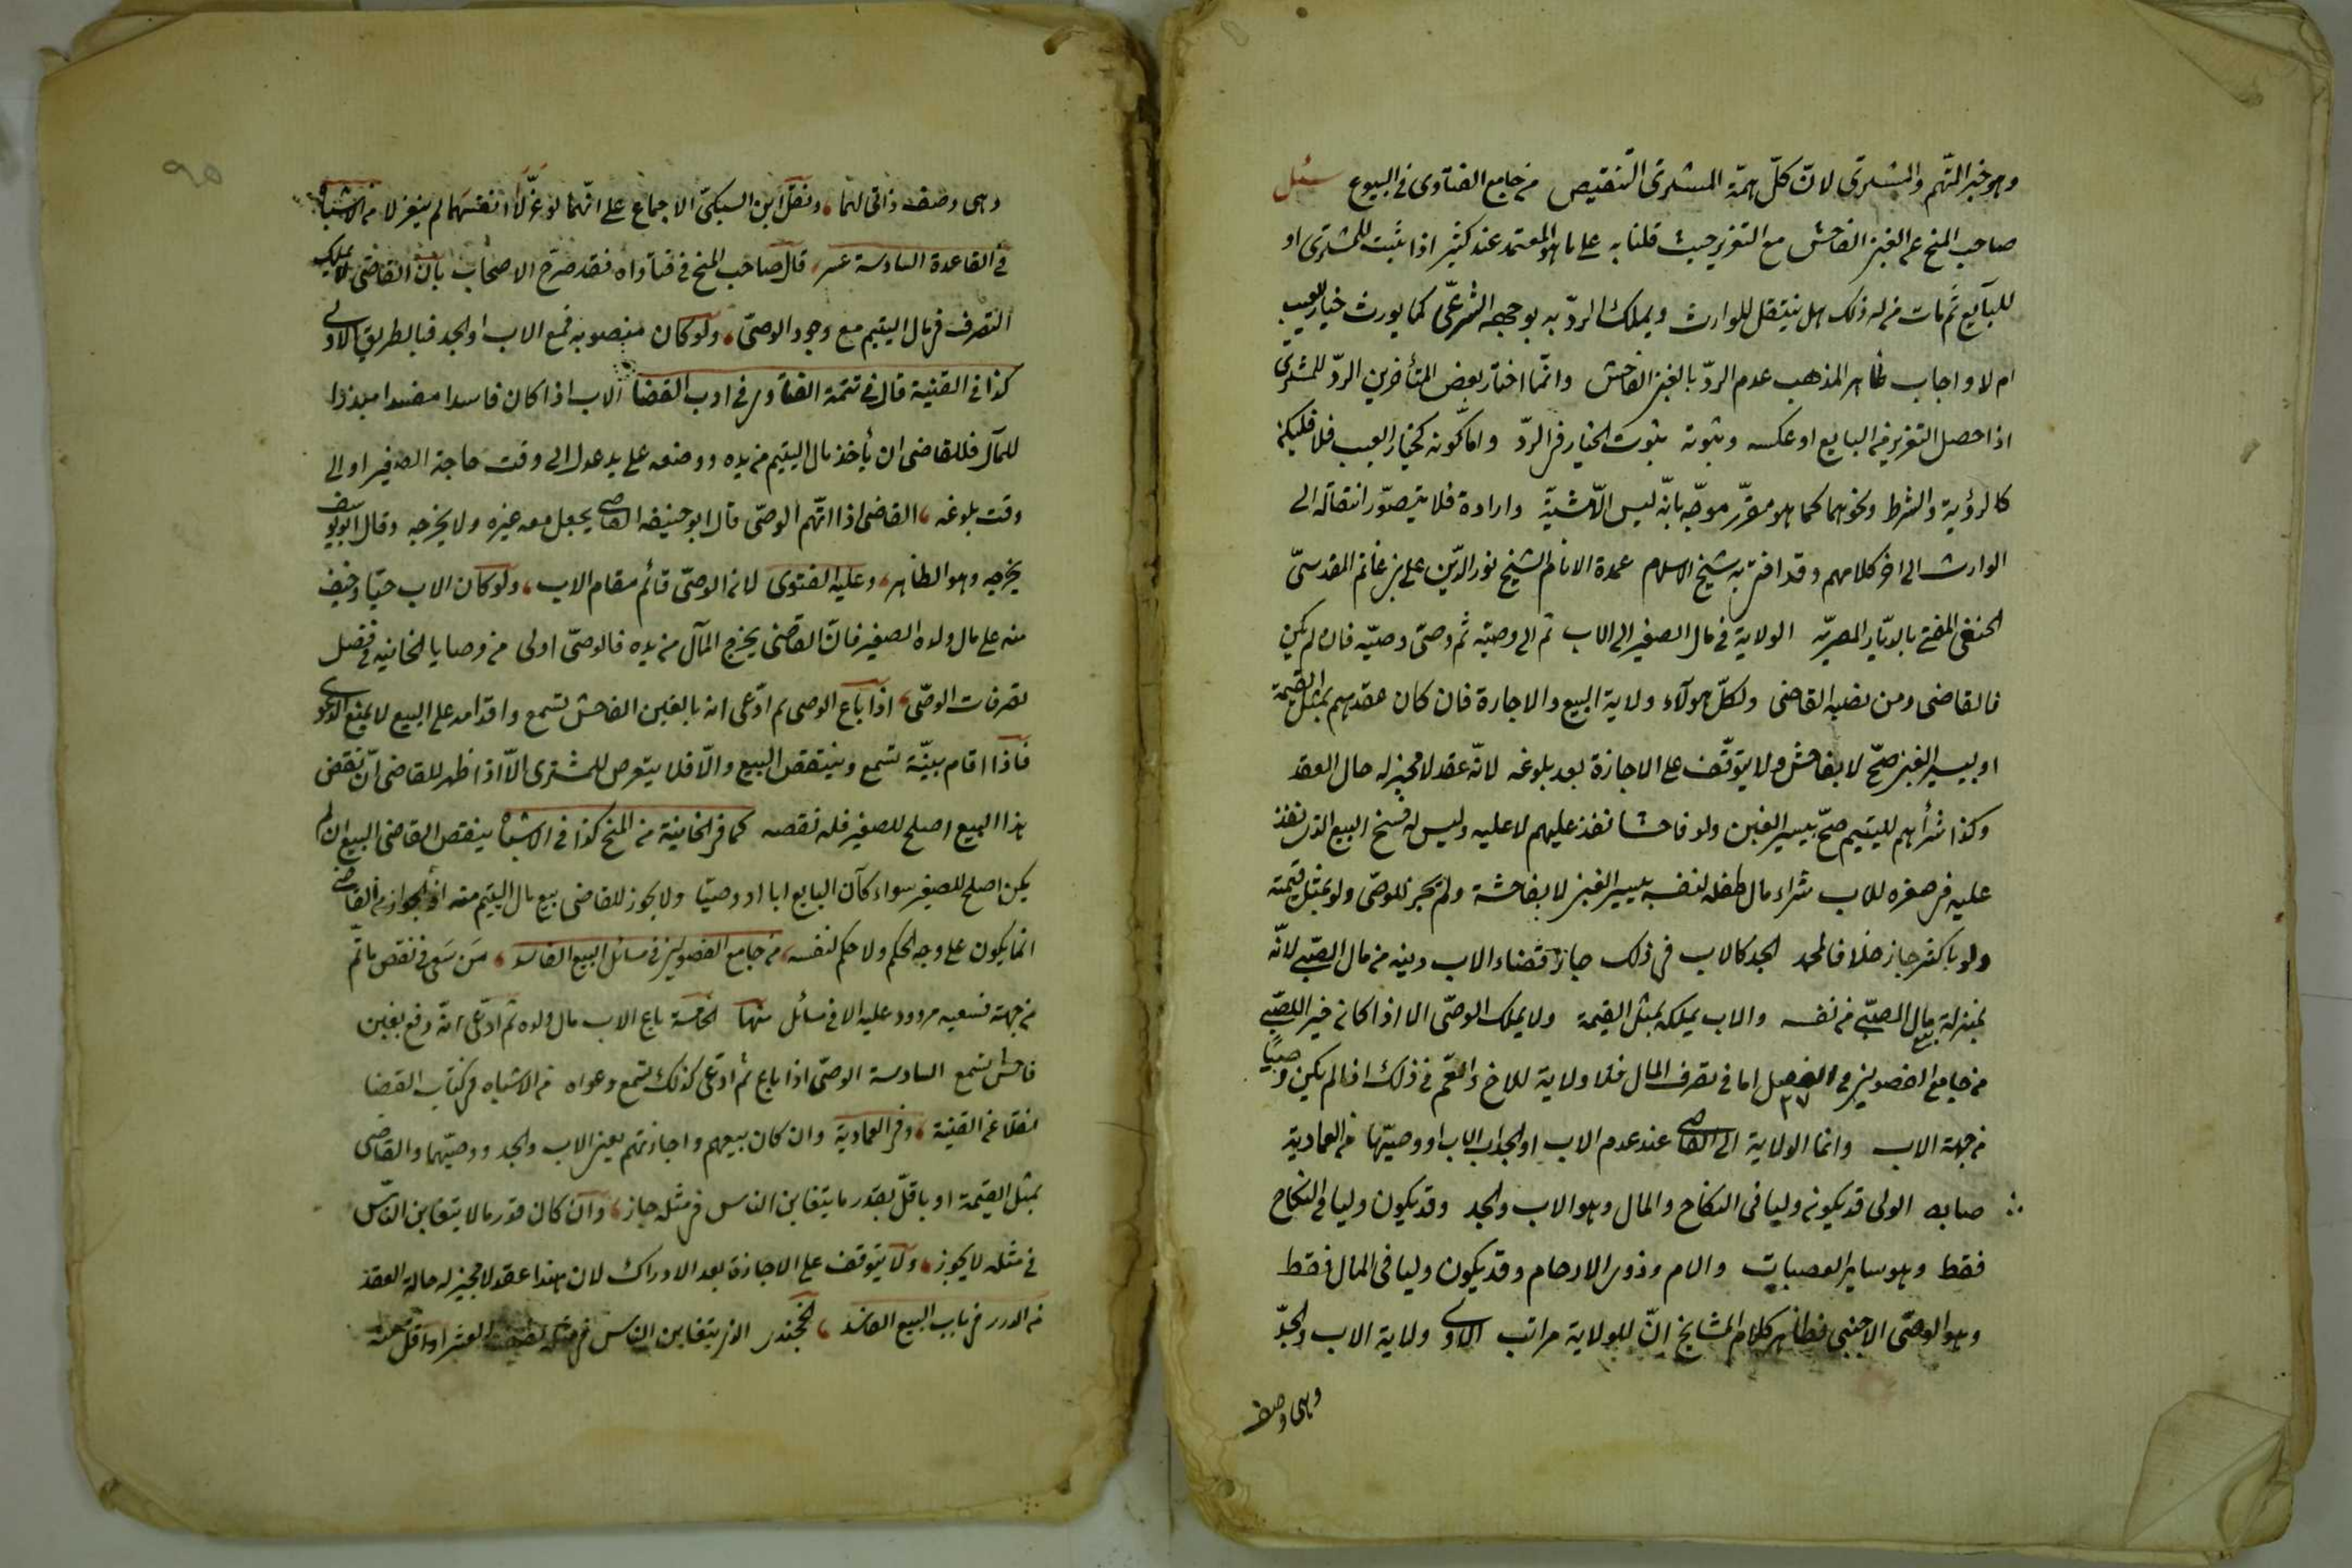 وهو خير التهم والمشترى لانّ كلّ همّة المشترى التنقيص من جامع الفتاوى فى البيوع سئل
صاحب المنح عن الغبن الفاحش مع التغرير حيث قلنا به على ما هو المعتمد عند كثير اذا ثبت للمشترى او
للبايع ثم مات من له ذلك هل ينتقل للوارث ويملك الردّ به بوجهه الشرعىّ كما يورث خيار العيب
ام لا واجاب ظاهر المذهب عدم الردّ بالغبن الفاحش وانّما اختار بعض المتأخرين الردّ للمشترى
اذا حصل التغرير من البايع او عكسه وثبوته بثبوت الخيار فى الردّ واما كونه كخيار العيب فلا فليكن
كالرؤية والشرط ونحوهما كما هو مقرّر موجّه بانّه ليس الّا مشيّة وارادة فلا يتصوّر انتقاله الى
الوارث الى اخر كلامهم وقد افتى به شيخ الاسلام عمدة الانام الشيخ نور الدّين على بن غانم المقدسىّ
الحنفى المفتى بالديار المصريّة الولاية فى مال الصغير الى الاب ثم الى وصيّه ثم وصىّ وصيّه فان لم يكن
فالقاضى ومن نصبه القاضى ولكلّ هولاء ولاية البيع والاجارة فان كان عقدهم بمثل القيمة
او بيسير الغبن صحّ لا بفاحش ولا يتوقّف على الاجازة بعد بلوغه لانّه عقد لا مجيز له حال العقد
وكذا شرأهم لليتيم صحّ بيسير الغبن ولو فاحشا نفذ عليهم لا عليه وليس له فسخ البيع الذى نفذ
عليه فى صغره للاب شراء مال طفله لنفسه بيسير الغبن لا بفاحشه ولم يجز للوصى ولو بمثل قيمته
ولو باكثر جاز خلافا لمحمد الجد كالاب فى ذلك جاز قضاء الاب دينه من مال الصّبى لانّه
بمنزلة بيع مال الصبىّ من نفسه والاب يملكه بمثل القيمة ولا يملك الوصىّ الا اذا كان خير اللصّبى
من جامع الفصولين فى الفصل ٢٧ اما فى تصرف المال فلا ولاية للاخ والعّم فى ذلك اذا لم يكن وصيّا
من جهة الاب وانما الولاية الى القاضى عند عدم الاب او الجد اب الاب او وصيّهما من العمادية
ضابطه الولى قد يكون وليا فى النكاح والمال وهو الاب والجد وقد يكون وليا فى النكاح
فقط وهو ساير العصبات والام وذوى الارحام وقد يكون وليا فى المال فقط
وهو الوصىّ الاجنبى فظاهر كلام المشايخ انّ للولاية مراتب الاولى ولاية الاب والجدّ
وهى وصف
٩٥
وهى وصف ذاتى لهما ونقل ابن السبكىّ الاجماع على انّهما لو عزّلا انفسهما لم ينعزلا من الاشباه
فى القاعدة السادسة عشر قال صاحب المنح فى فتاواه فقد صرّح الاصحاب بان القاضى لا يملك
التصرف فى مال اليتيم مع وجود الوصىّ ولو كان منصوبه فمع الاب او الجد فبالطريق الاولى
كذا فى القنية قال فى تتمة الفتاوى فى ادب القضا الاب اذا كان فاسدا مفسدا مبذرا
للمال فللقاضى ان يأخذ مال اليتيم من يده ووضعه على يد عدل الى وقت حاجة الصغير او الى
وقت بلوغه القاضى اذا اتّهم الوصىّ قال ابو حنيفه القاضى يجعل معه غيره ولا يخرجه وقال ابو يوسف
يخرجه وهو الظاهر وعليه الفتوى لان الوصىّ قائم مقام الاب ولو كان الاب حيّا وخيف
منه على مال ولده الصغير فانّ القاضى يخرج المال من يده فالوصىّ اولى من وصايا الخانيه فى فصل
تصرفات الوصىّ اذا باع الوصى ثم ادّعى انه بالغبن الفاحش تسمع واقدامه على البيع لا يمنع الدعوى
فاذا اقام بيّنة تسمع وينتقض البيع والّا فلا يتعرض للمشترى الّا اذا ظهر للقاضى انّ نقض
هذا البيع اصلح للصغير فله نقضه كما فى الخانية من المنح كذا فى الاشباه ينقض القاضى البيع ان لم
يكن اصلح للصغير سواء كان البايع ابا او وصيّا ولا يجوز للقاضى بيع مال اليتيم منه اذ الجواز من القاضى
انما يكون على وجه الحكم ولا حكم لنفسه من جامع الفصولين فى مسائل البيع الفاسد من سعى فى نقض ما تّم
من جهته فسعيه مردود عليه الا فى مسائل منها الخامسة باع الاب مال ولده ثم ادّعى انّه وقع بغبن
فاحش تسمع السادسة الوصىّ اذا باع ثم ادّعى كذلك تسمع دعواه من الاشباه فى كتاب القضا
نقلا عن القنية وفى العمادية وان كان بيعهم واجازتهم يعنى الاب والجد ووصيّهما والقاضى
بمثل القيمة او باقلّ بقدر ما يتغابن الناس فى مثله جاز وان كان قدر ما لا يتغابن النّاس
فى مثله لا يجوز ولا يتوقف على الاجازة بعد الادراك لان هذا عقد لا مجيز له حالة العقد
من الدرر فى باب البيع الفاسد الذى يتغابن الناس فى مثله نصف العشر او اقلّ منه